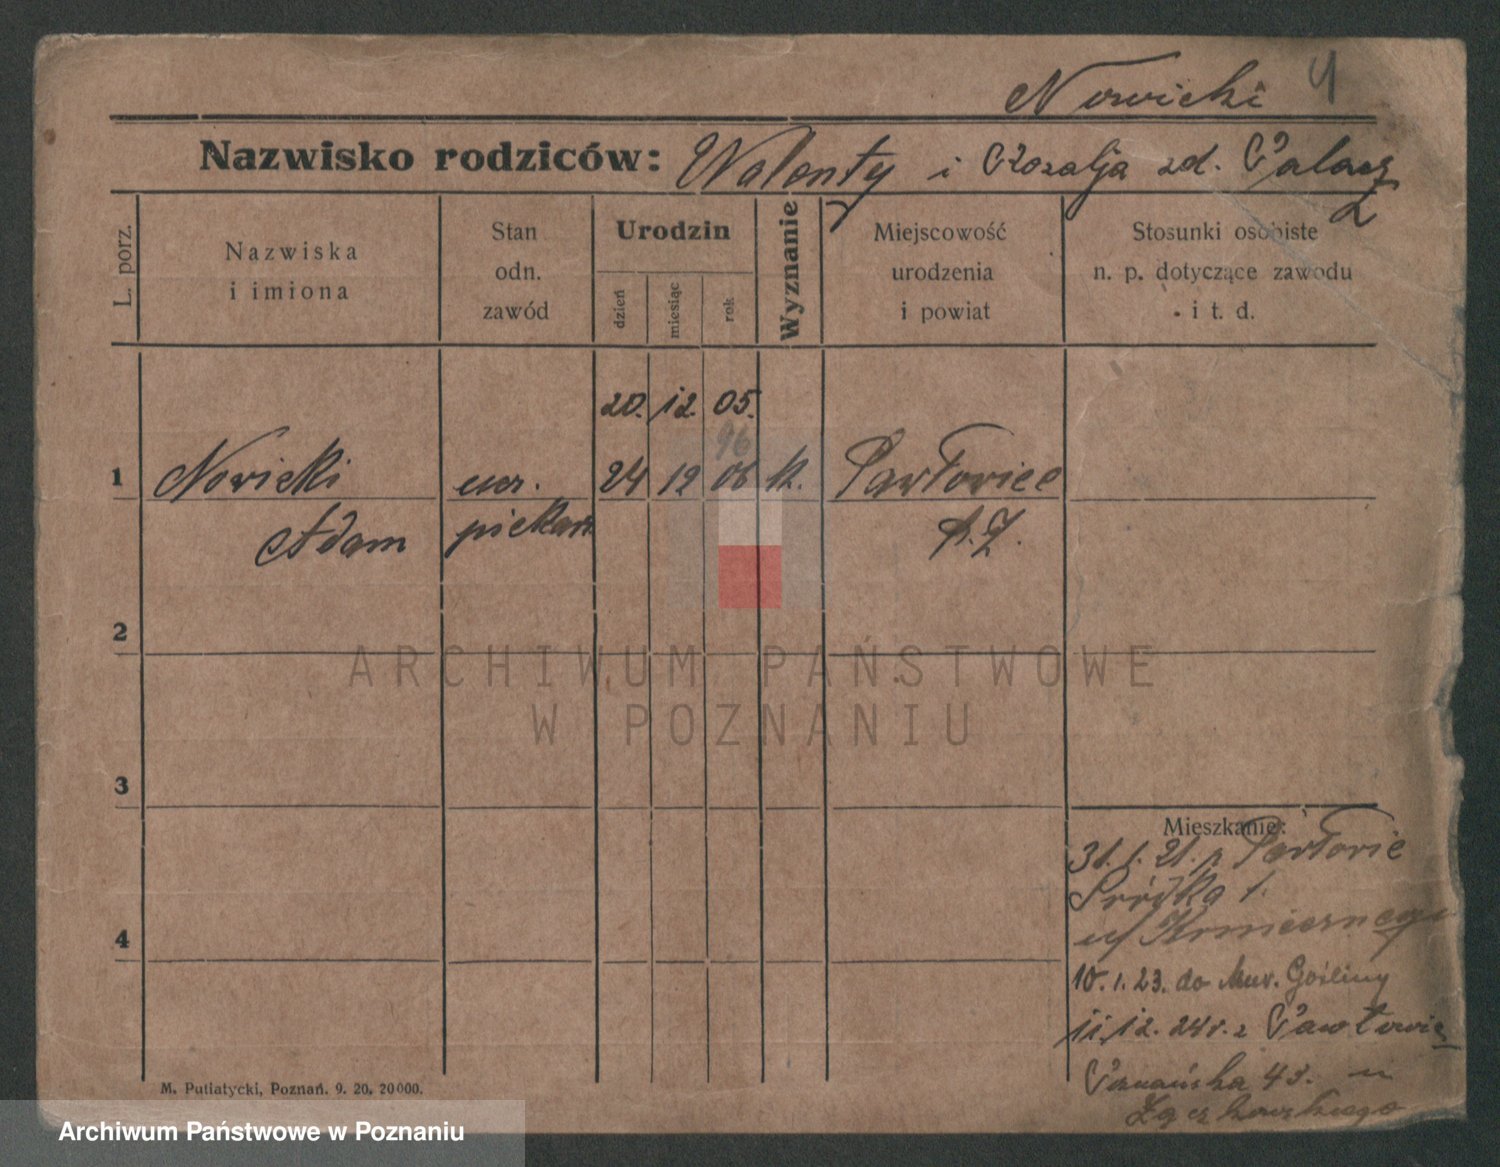 Nowicki 4
Nazwisko rodziców: Walenty i Rozalja zd. Palacz
L. porz.
Nazwiska
i imiona
Stan
odn.
zawód
Urodzin
dzień
miesiąc
rok
Wyznanie
Miejscowość
urodzenia
i powiat
Stosunki osobiste
n. p. dotyczące zawodu
i t. d.
20. 12. 05.
96
1 Nowicki ucz. 24 12 06 k. Pawłowice
Adam piekar. p. Z.
ARCHIWUM PAŃSTWOWE
W POZNANIU
2
3
4
Mieszkanie:
31.1.21. p Pawłowic
Śródka 1.
u/
10.1.23. do Mur. Gośliny
11.12.24 r. z Pawłowic
43. u
M. Putiatycki, Poznań. 9. 20, 20000.
Archiwum Państwowe w Poznaniu